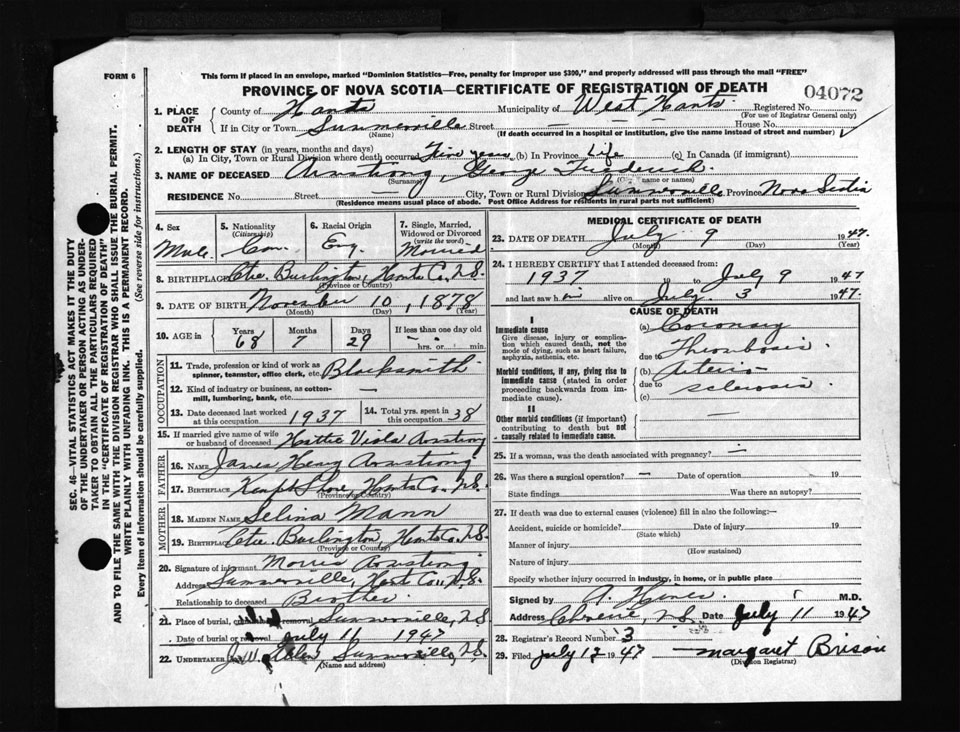 FORM 6
This form if placed in an envelope, marked "Dominion Statistics—Free, penalty for improper use $300," and properly addressed will pass through the mail "FREE"
PROVINCE OF NOVA SCOTIA—CERTIFICATE OF REGISTRATION OF DEATH
04072
1. PLACE OF DEATH
County of Hants Municipality of West Hants Registered No.
(For use of Registrar General only)
If in City or Town Summerville Street — — — House No.
(Name) (If death occurred in a hospital or institution, give the name instead of street and number)
2. LENGTH OF STAY (in years, months and days)
(a) In City, Town or Rural Division where death occurred Five years (b) In Province Life (c) In Canada (if immigrant)
3. NAME OF DECEASED Armstrong, George
(Surname) (Given name or names)
RESIDENCE No. Street City, Town or Rural Division Summerville Province Nova Scotia
(Residence means usual place of abode. Post Office Address for residents in rural parts not sufficient)
4. Sex
Male
5. Nationality
(Citizenship)
Can.
6. Racial Origin
Eng.
7. Single, Married, Widowed or Divorced
(write the word)
Married
8. BIRTHPLACE Ctre. Burlington, Hants Co., N.S.
(Province or Country)
9. DATE OF BIRTH November 10, 1878
(Month) (Day) (Year)
10. AGE in
Years 68
Months 7
Days 29
If less than one day
hrs. or min.
OCCUPATION
11. Trade, profession or kind of work as spinner, teamster, office clerk, etc. Blacksmith
12. Kind of industry or business, as cotton-mill, lumbering, bank, etc. —
13. Date deceased last worked at this occupation 1937
14. Total yrs. spent in this occupation 38
15. If married give name of wife or husband of deceased Hattie Viola Armstrong
FATHER
16. NAME James Henry Armstrong
17. BIRTHPLACE Kempt Shore, Hants Co., N.S.
(Province or Country)
MOTHER
18. MAIDEN NAME Selina Mann
19. BIRTHPLACE Ctre. Burlington, Hants Co., N.S.
(Province or Country)
20. Signature of informant Morris Armstrong
Address Summerville, Hants Co., N.S.
Relationship to deceased Brother
21. Place of burial, cremation or removal Summerville, N.S.
Date of burial or removal July 11 1947
22. UNDERTAKER Summerville, N.S.
(Name and address)
MEDICAL CERTIFICATE OF DEATH
23. DATE OF DEATH July 9 1947.
(Month) (Day) (Year)
24. I HEREBY CERTIFY that I attended deceased from:
1937 19 to July 9 1947
and last saw him alive on July 3 1947.
CAUSE OF DEATH
I
Immediate cause
Give disease, injury or complication which caused death, not the mode of dying, such as heart failure, asphyxia, asthenia, etc.
(a) Coronary
due to Thrombosis
Morbid conditions, if any, giving rise to immediate cause (stated in order proceeding backwards from immediate cause).
(b) Arterio-
due to sclerosis
(c)
II
Other morbid conditions (if important) contributing to death but not causally related to immediate cause. —
25. If a woman, was the death associated with pregnancy? —
26. Was there a surgical operation? — Date of operation 19
State findings Was there an autopsy?
27. If death was due to external causes (violence) fill in also the following:—
Accident, suicide or homicide? Date of injury 19
(State which)
Manner of injury
(How sustained)
Nature of injury
Specify whether injury occurred in industry, in home, or in public place
Signed by M.D.
Address N.S. Date July 11 1947
28. Registrar's Record Number 3
29. Filed July 12 1947 Margaret Brison
(Division Registrar)
SEC. 46—VITAL STATISTICS ACT MAKES IT THE DUTY
OF THE UNDERTAKER OR PERSON ACTING AS UNDERTAKER TO OBTAIN ALL THE PARTICULARS REQUIRED
IN THE "CERTIFICATE OF REGISTRATION OF DEATH"
AND TO FILE THE SAME WITH THE DIVISION REGISTRAR WHO SHALL ISSUE THE BURIAL PERMIT.
WRITE PLAINLY WITH UNFADING INK. THIS IS A PERMANENT RECORD.
Every item of information should be carefully supplied. (See reverse side for instructions).